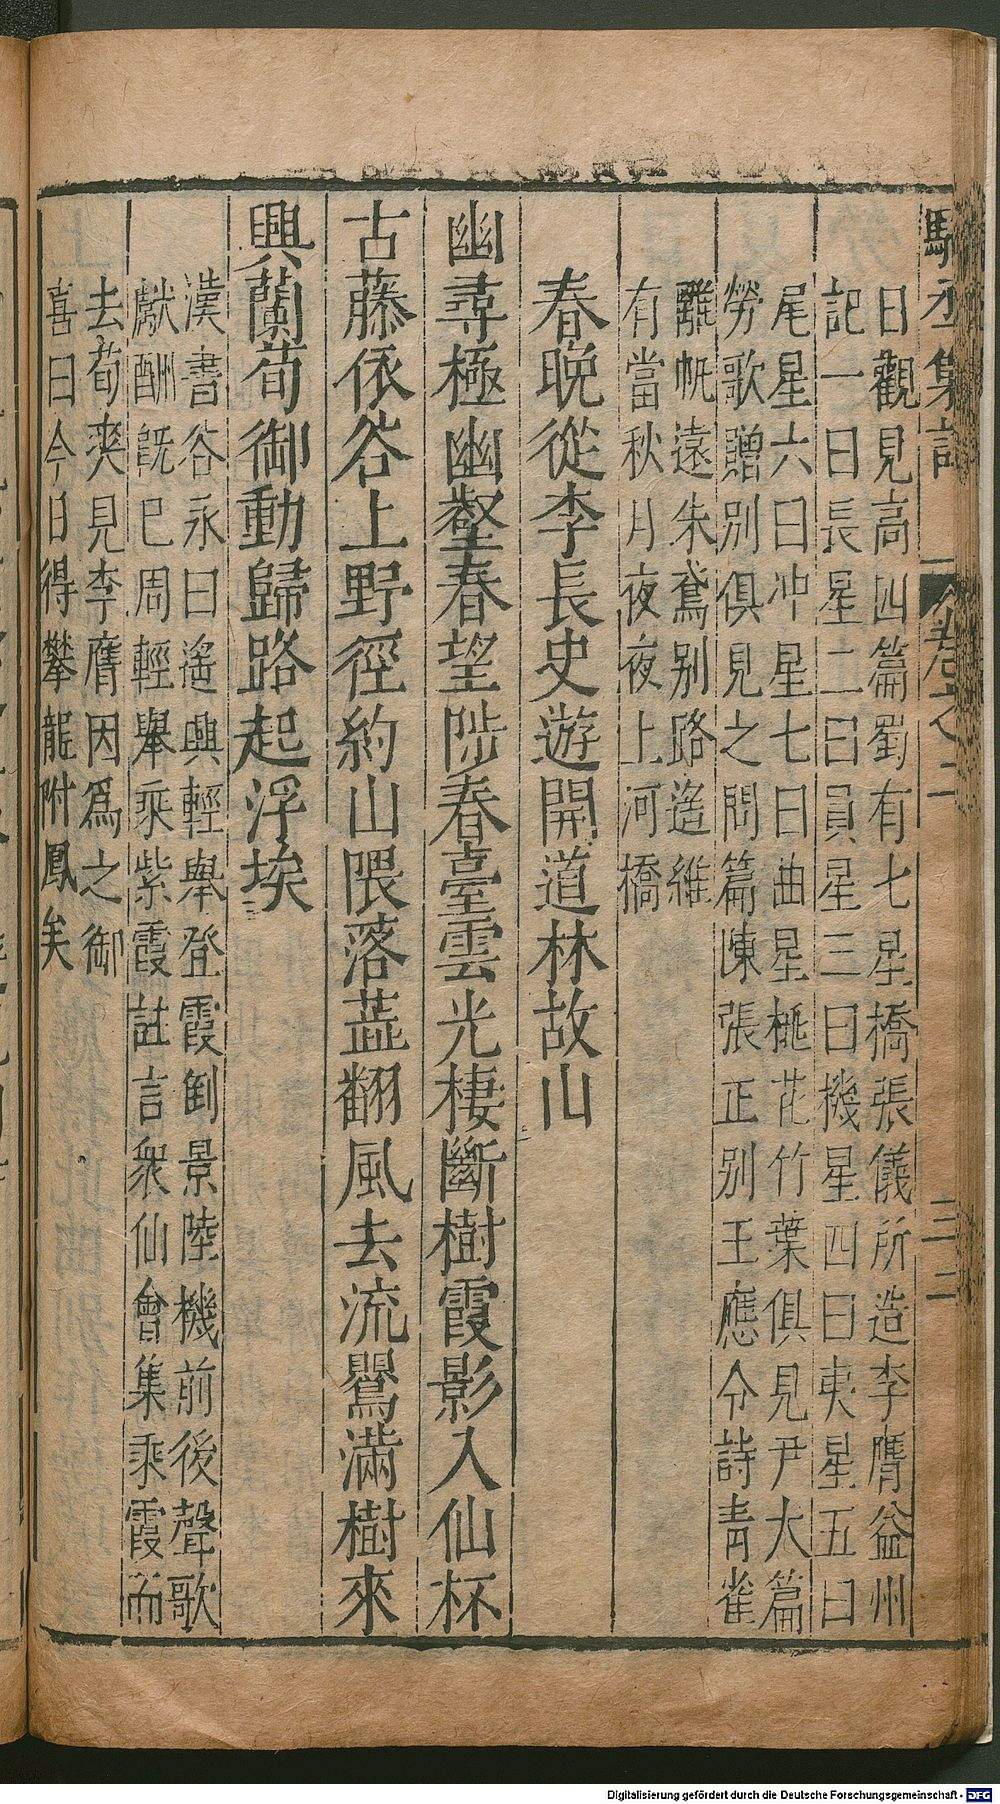 駱丞集註 卷之二 三二
日觀見高四篇蜀有七星橋張儀所造李膺益州
記一曰長星二曰員星三曰機星四曰夷星五曰
尾星六曰冲星七曰曲星桃花竹葉俱見尹大篇
勞歌贈別俱見之問篇陳張正別王應令詩青雀
離帆遠朱鳶別路遙維
有當秋月夜夜上河橋
春晚從李長史遊開道林故山
幽尋極幽壑春望陟春臺雲光棲斷樹霞影入仙杯
古藤依谷上野徑約山隈落蕋翻風去流鶯滿樹來
興闌荀御動歸路起浮埃
漢書谷永曰遙興輕舉登霞倒景陸機前後聲歌
獻酬旣已周輕舉乘紫霞註言衆仙會集乘霞而
去荀爽見李膺因爲之御
喜曰今日得攀龍附鳳矣
Digitalisierung gefördert durch die Deutsche Forschungsgemeinschaft - DFG